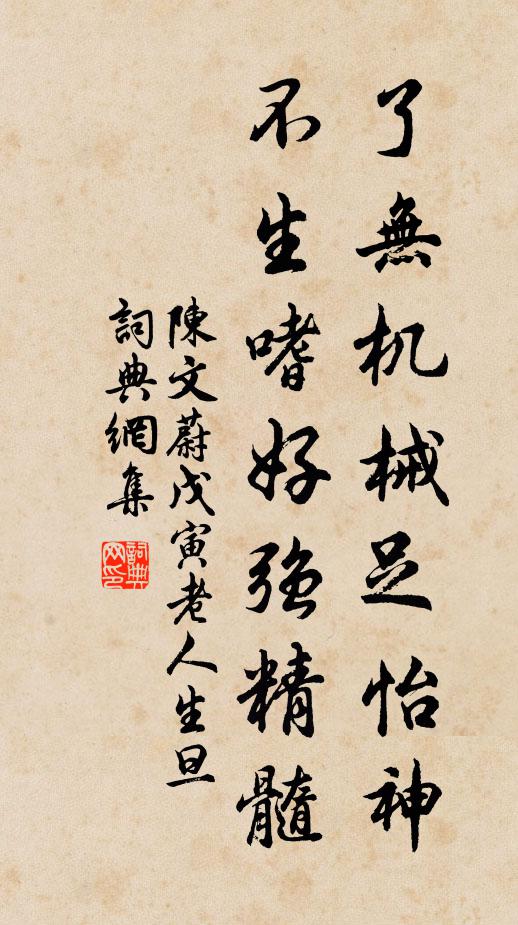 了無机械足怡神
不生嗜好強精髓
陳文蔚戊寅老人生旦
詞典網集
詞典
网印